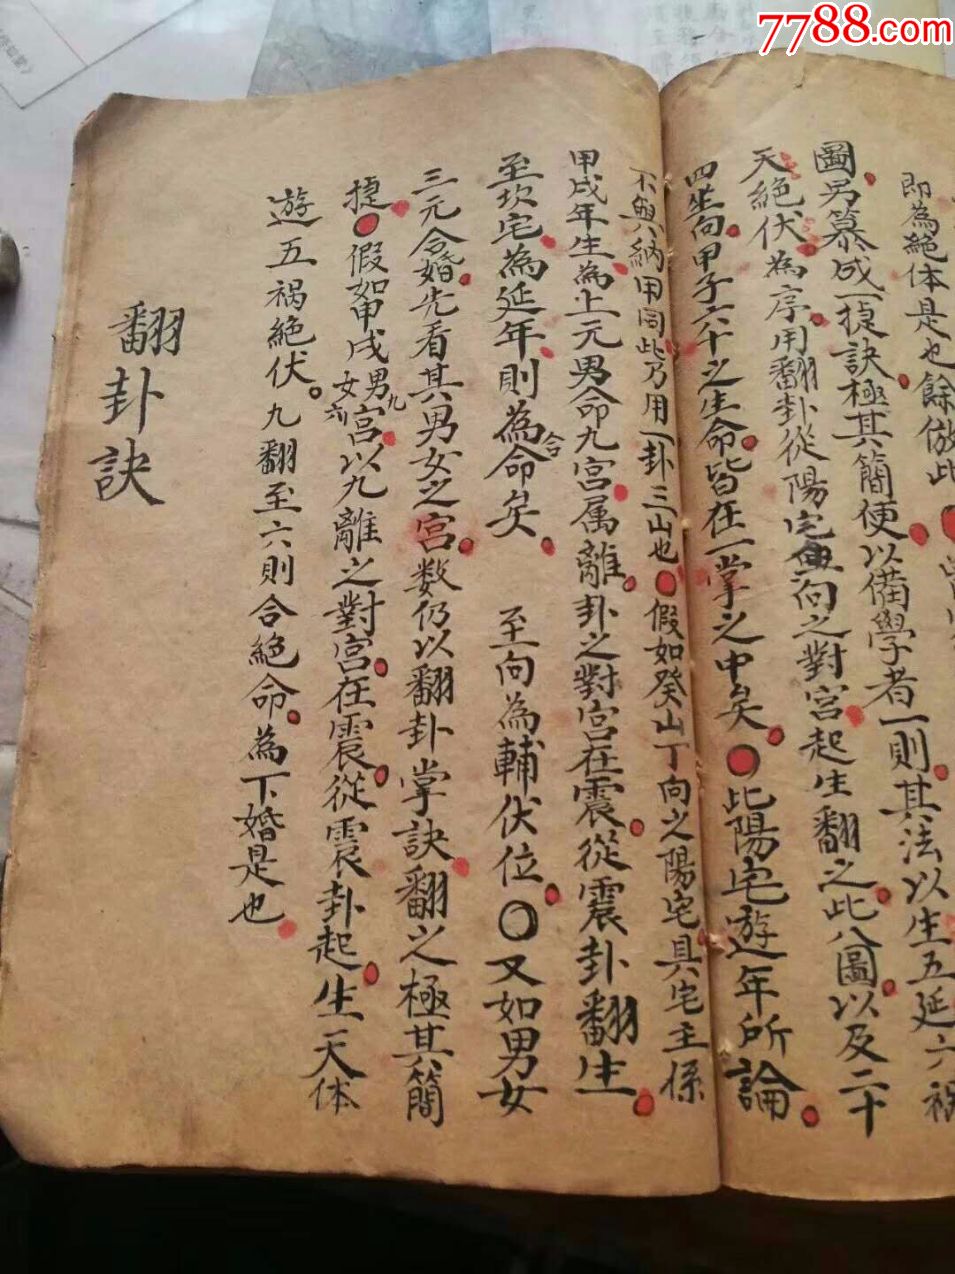 7788.com
即為絕体是也餘倣此
圖另纂成一捷訣極其簡便以備學者一則其法以生五延六禍
天絕伏為序用翻卦從陽宅坐向之對宮起生翻之此八圖以及二十
四坐向甲子六十之生命皆在一掌之中矣〇此陽宅遊年所論
不與納甲同此乃用一卦三山也〇假如癸山丁向之陽宅具宅主係
甲戌年生為上元男命九宮属離卦之對宮在震從震卦翻生
至坎宅為延年則為合命矣 至向為輔伏位〇又如男女
三元合婚先看其男女之宮数仍以翻卦掌訣翻之極其簡
捷〇假如甲戌男九女六宮以九離之對宮在震從震卦起生天体
遊五禍絕伏。九翻至六則合絕命為下婚是也
翻卦訣